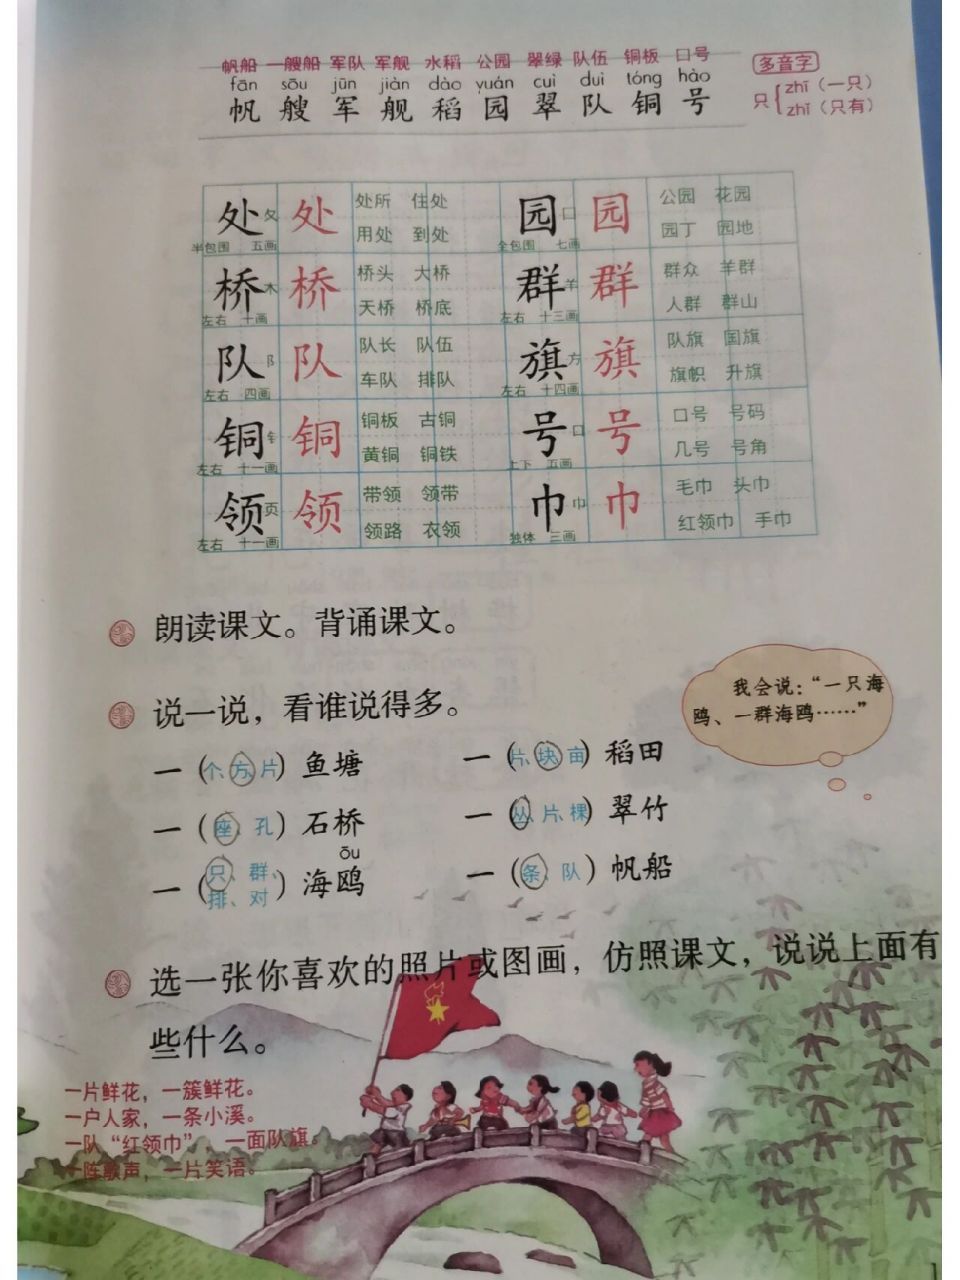 帆船 一艘船 军队 军舰 水稻 公园 翠绿 队伍 铜板 口号
fān sōu jūn jiàn dào yuán cuì duì tóng hào
帆 艘 军 舰 稻 园 翠 队 铜 号
多音字
只 zhī（一只）
zhǐ（只有）
处 夂 处 处所 住处 园 囗 园 公园 花园
半包围 五画 用处 到处 全包围 七画 园丁 园地
桥 木 桥 桥头 大桥 群 羊 群 群众 羊群
左右 十画 天桥 桥底 左右 十三画 人群 群山
队 阝 队 队长 队伍 旗 方 旗 队旗 国旗
左右 四画 车队 排队 左右 十四画 旗帜 升旗
铜 钅 铜 铜板 古铜 号 口 号 口号 号码
左右 十一画 黄铜 铜铁 上下 五画 几号 号角
领 页 领 带领 领带 巾 巾 巾 毛巾 头巾
左右 十一画 领路 衣领 独体 三画 红领巾 手巾
朗读课文。背诵课文。
说一说，看谁说得多。
我会说：“一只海
鸥、一群海鸥……”
一（个、方、片）鱼塘 一（片、块、亩）稻田
一（座、孔）石桥 一（丛、片、棵）翠竹
ōu
一（只、群、排、对）海鸥 一（条、队）帆船
选一张你喜欢的照片或图画，仿照课文，说说上面有
些什么。
一片鲜花，一簇鲜花。
一户人家，一条小溪。
一队“红领巾”，一面队旗。
一阵歌声，一片笑语。
1